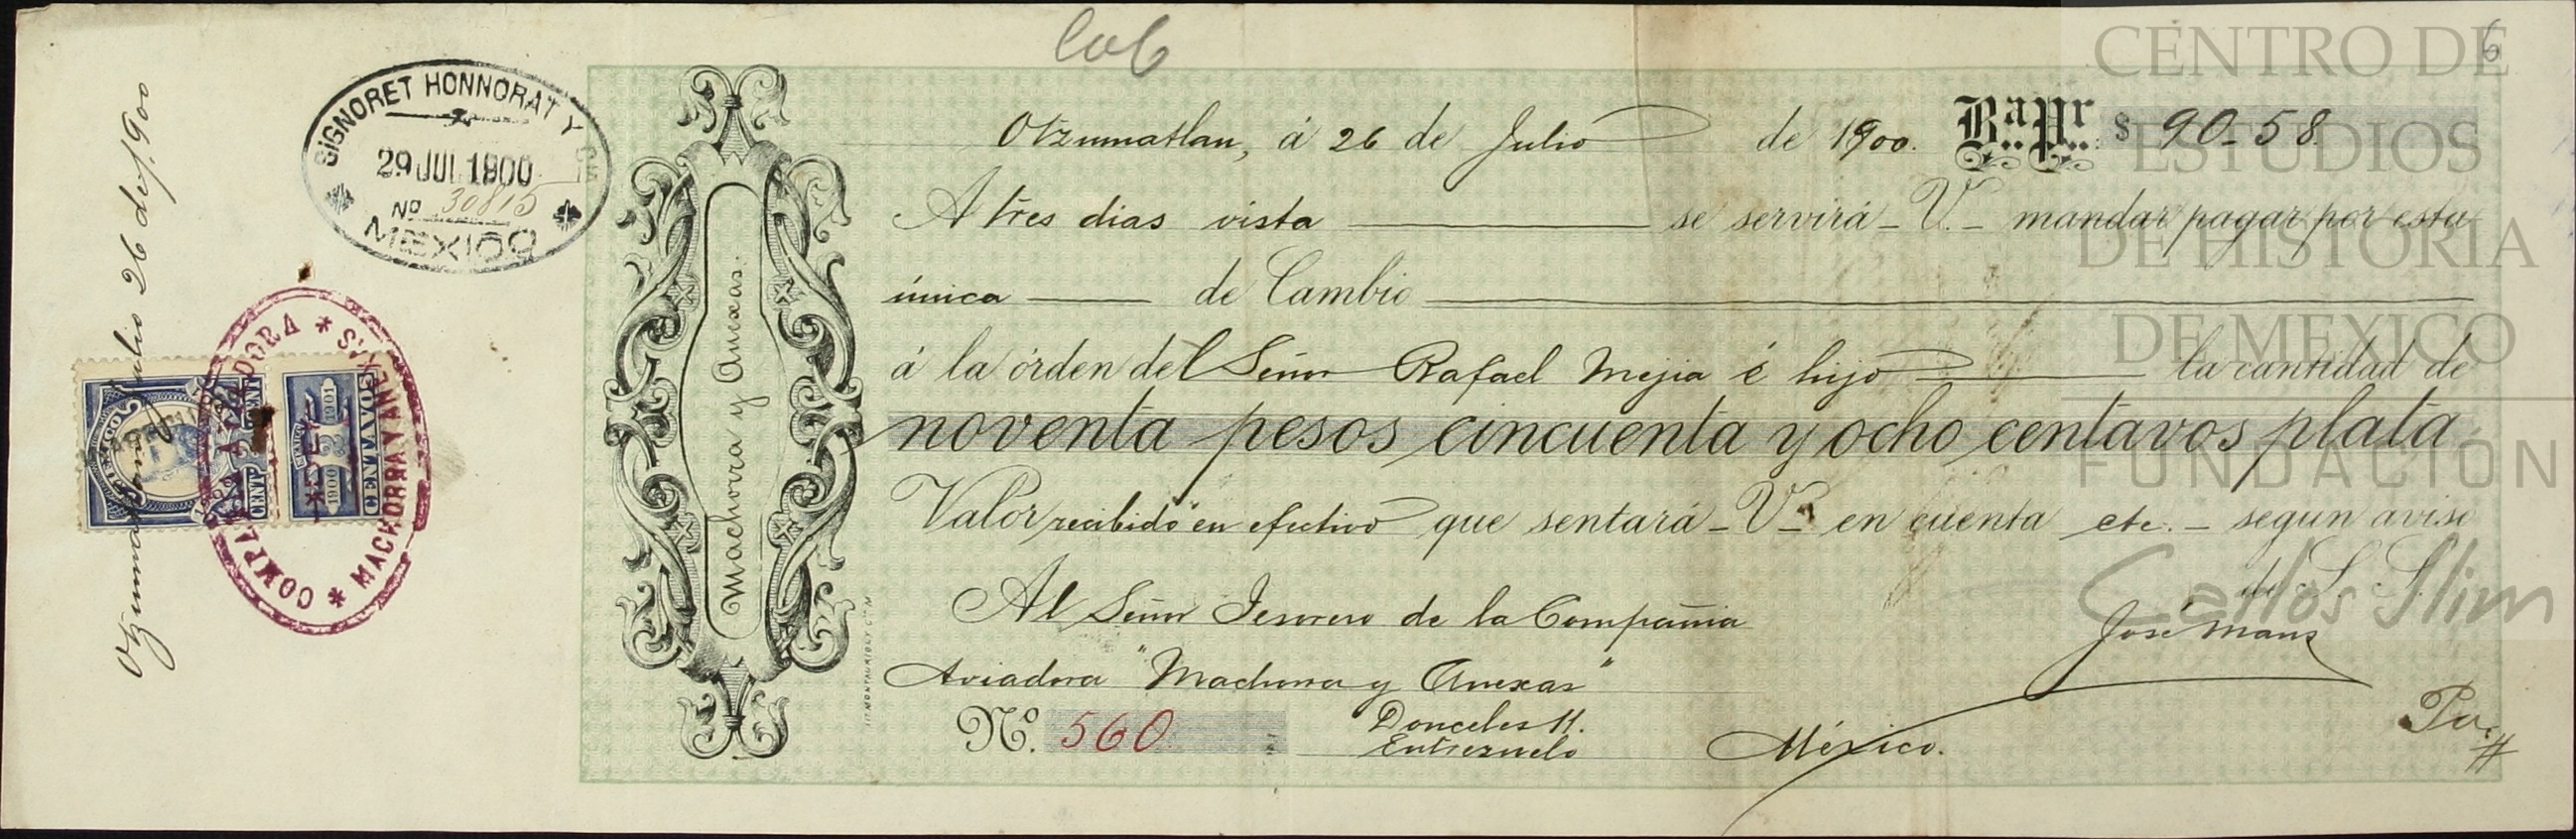 Cob
6
Otzumatlan, á 26 de Julio de 1900. Ba. Pr. $ 90-58.
A tres dias vista se servirá - V. - mandar pagar por esta
única de Cambio
á la órden del Señor Rafael Mejia é hijo la cantidad de
noventa pesos cincuenta y ocho centavos plata
Valor recibido en efectivo que sentará - V - en cuenta etc. - segun aviso
de S. S.
Al Señor Tesorero de la Compañia
Aviadora "Machorra y Anexas"
No. 560
Donceles 11.
Entresuelo
México.
José
Machorra y Anexas.
SIGNORET HONNORAT Y CIE
29 JUL 1900
No 30815
MEXICO
Otzumatlan Julio 26 de 1900
COMPAÑIA AVIADORA
MACHORRA Y ANEXAS
MEXICO
CENTAVOS
1900 1901
CENTRO DE
ESTUDIOS
DE HISTORIA
DE MEXICO
FUNDACIÓN
Carlos Slim